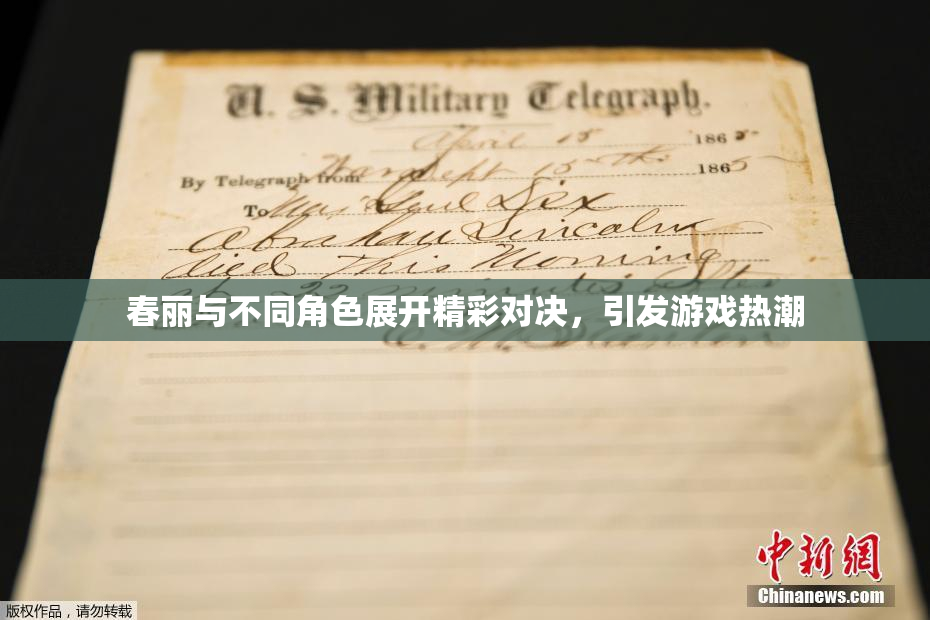 U. S. Military Telegraph.
April 15 1865
By Telegraph from War Dept 15th 1865
To Maj Genl Dix
Abraham Lincoln
died This Morning
at 22 minutes after
春丽与不同角色展开精彩对决，引发游戏热潮
E. M. Stanton
中新网
Chinanews.com
版权作品，请勿转载